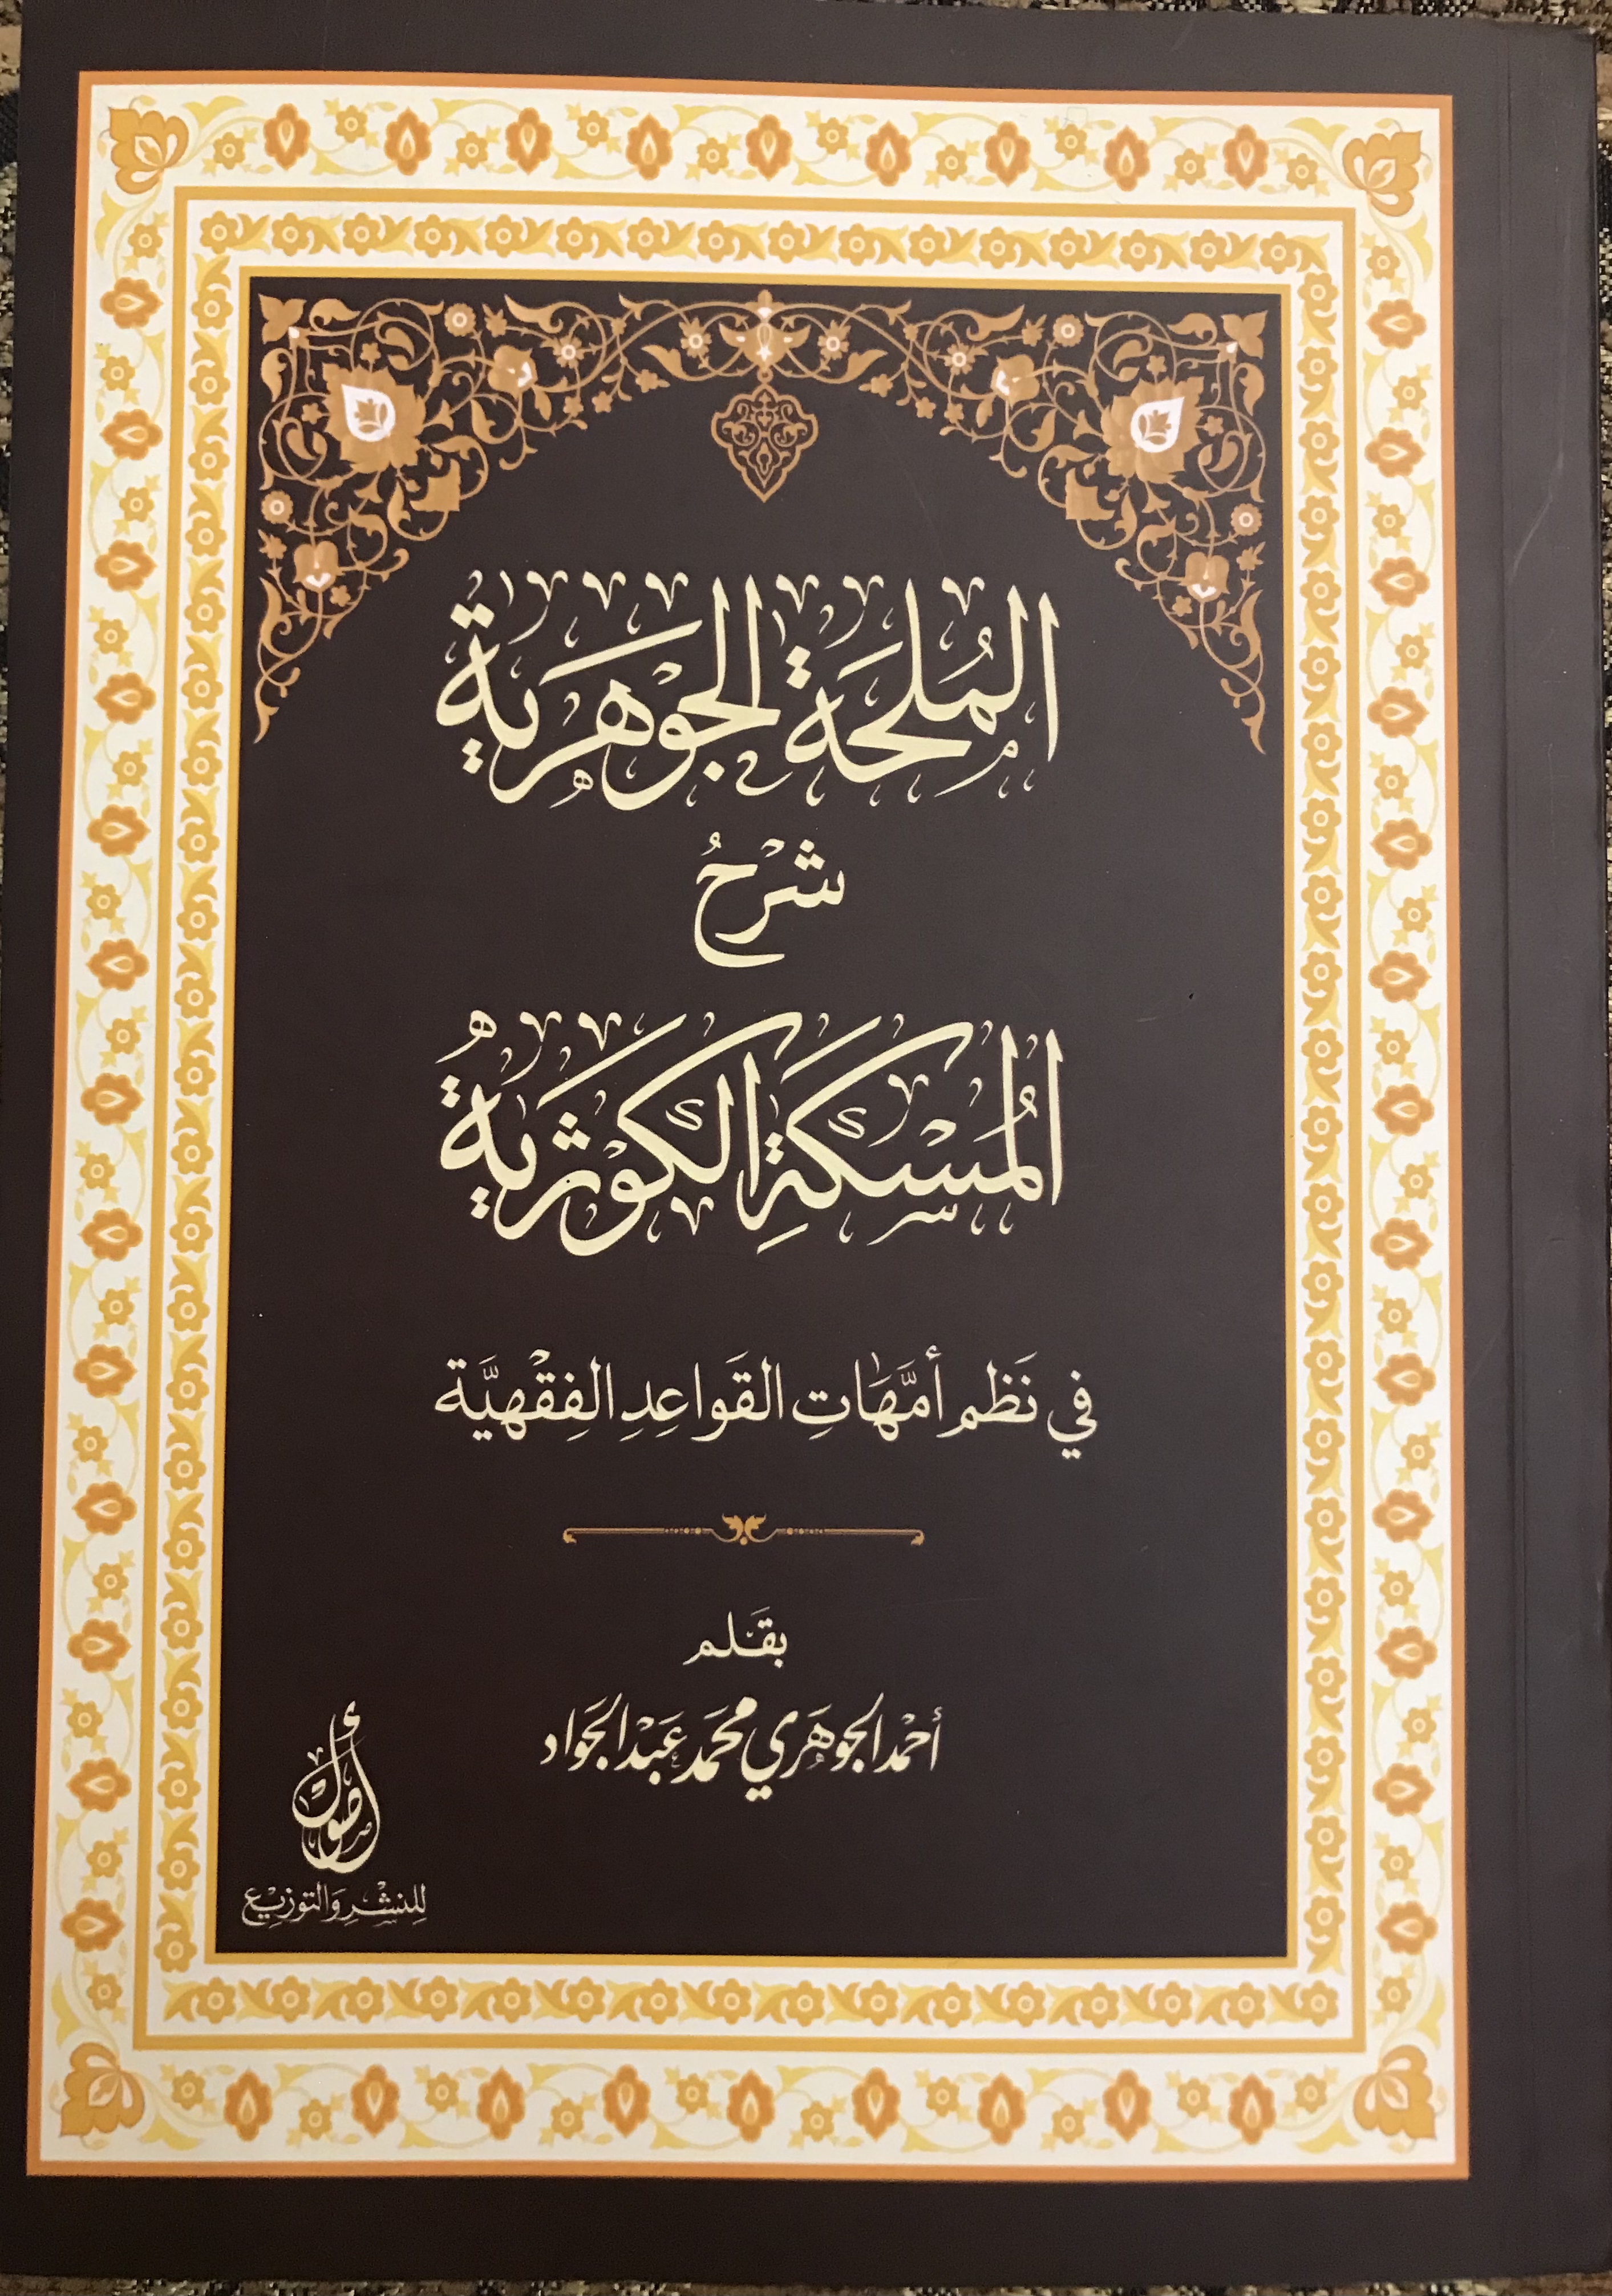 المُلحَة الجَوْهَرية
شَرْحُ
المُسْكَةِ الكَوْثَرية
في نَظم أمَّهَاتِ القَواعِدِ الفِقْهيَّة
بقَلم
أحْمد الجَوهَري محمَّد عَبْد الجَواد
أصول
للنشْرِ وَالتوزيْع